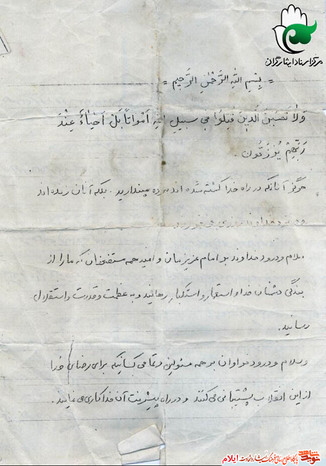 مرکز اسناد ایثارگران
= بِسْمِ اللّهِ الرَّحْمنِ الرَّحیمِ =
وَلا تَحسَبَنَّ الَّذینَ قُتِلُوا فی سبیلِ اَمْواتاً بَلْ اَحْیٰاءٌ عِنْدَ
رَبِّهِمْ یُرْزَقُونَ.
هرگز آنانکه در راه خدا کشته شده اند مرده مپندارید. بلکه آنان زنده اند
سلام و درود خداوند بر امام عزیزمان و امید همه مستضعفان که ما را از
بندگی استعمار و استکبار رهانید و به عظمت و قدرت و استقلال
رسانید.
و سلام و درود فراوان بر همه مسئولین و تمامی کسانیکه برای رضای خدا
از این انقلاب پشتیبانی می کنند و در راه پیشرفت آن فداکاری می نمایند.
ایلام